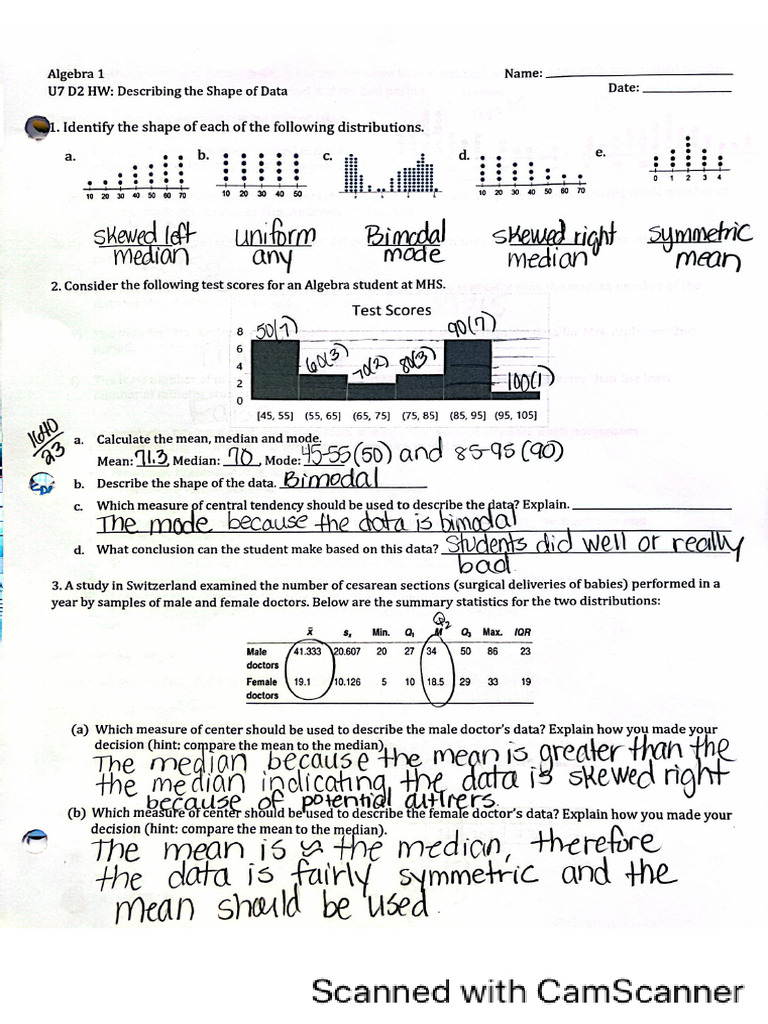 Algebra 1 Name:
U7 D2 HW: Describing the Shape of Data Date:
1. Identify the shape of each of the following distributions.
a. b. c. d. e.
10 20 30 40 50 60 70 10 20 30 40 50 10 20 30 40 50 60 70 0 1 2 3 4
skewed left uniform Bimodal skewed right symmetric
median any mode median mean
2. Consider the following test scores for an Algebra student at MHS.
Test Scores
8 50(7) 90(7)
6 60(3) 70(2) 80(3)
4
2 100(1)
0
[45, 55] (55, 65] (65, 75] (75, 85] (85, 95] (95, 105]
1640
23
a. Calculate the mean, median and mode.
Mean: 71.3, Median: 70, Mode: 45-55(50) and 85-95(90)
b. Describe the shape of the data. Bimodal
c. Which measure of central tendency should be used to describe the data? Explain.
The mode because the data is bimodal
d. What conclusion can the student make based on this data? Students did well or really
bad.
3. A study in Switzerland examined the number of cesarean sections (surgical deliveries of babies) performed in a
year by samples of male and female doctors. Below are the summary statistics for the two distributions:
Q2
x̄ sₓ Min. Q₁ M Q₃ Max. IQR
Male 41.333 20.607 20 27 34 50 86 23
doctors
Female 19.1 10.126 5 10 18.5 29 33 19
doctors
(a) Which measure of center should be used to describe the male doctor's data? Explain how you made your
decision (hint: compare the mean to the median)
The median because the mean is greater than the
the median indicating the data is skewed right
because of potential outlirers.
(b) Which measure of center should be used to describe the female doctor's data? Explain how you made your
decision (hint: compare the mean to the median).
The mean is ≈ the median, therefore
the data is fairly symmetric and the
mean should be used.
Scanned with CamScanner